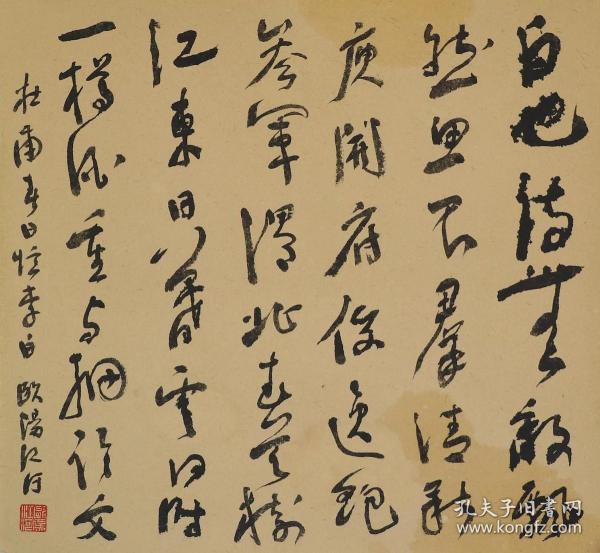 白也詩無敵飄
然思不羣清新
庾開府俊逸鮑
參軍渭北春天樹
江東日暮雲何時
一樽酒重与細論文
杜甫春日憶李白 歐陽江河
孔夫子旧书网
www.kongfz.com